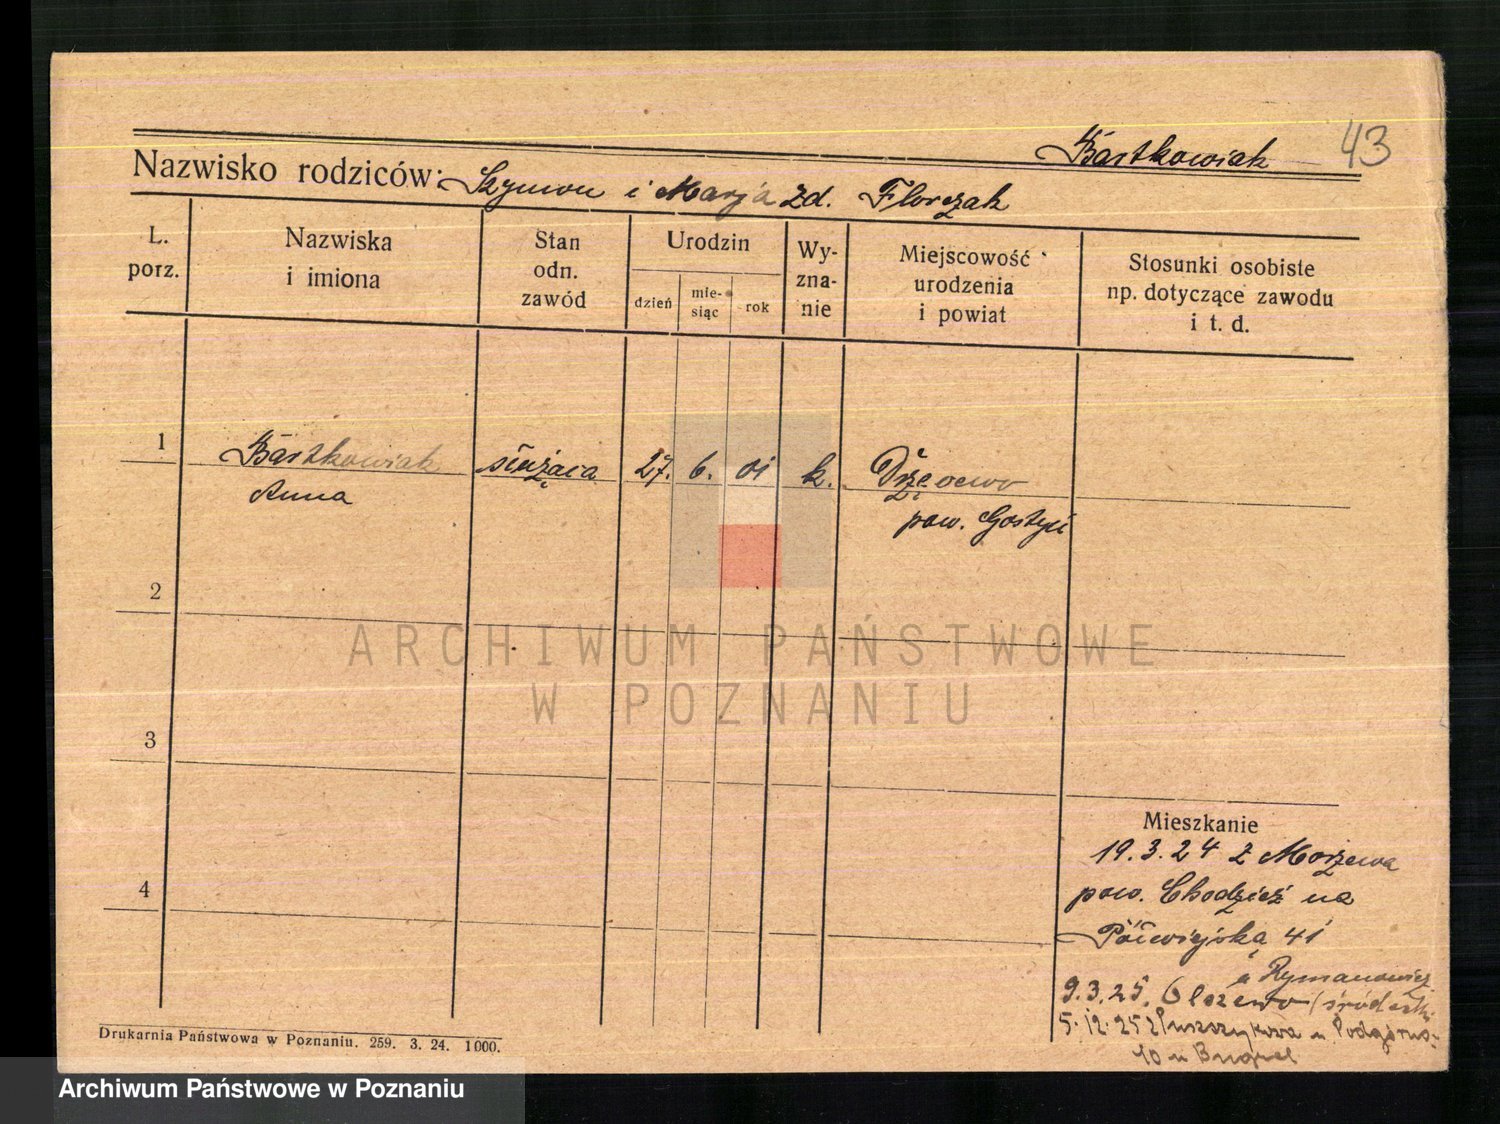 Bartkowiak 43
Nazwisko rodziców: Szymon i Marja zd. Florczak
L. porz.
Nazwiska i imiona
Stan odn. zawód
Urodzin
dzień
mie-siąc
rok
Wy-zna-nie
Miejscowość urodzenia i powiat
Stosunki osobiste np. dotyczące zawodu i t. d.
1 Bartkowiak służąca 27. 6. 01 k. Drzęcewo
Anna pow. Gostyń
2
ARCHIWUM PAŃSTWOWE
W POZNANIU
3
Mieszkanie
19.3.24 z Morzewa
4
pow. Chodzież na
Półwiejską 41
u Rymanowicz
9.3.25. Olszewo (śred
5.12.25 z Puszczykowa Podgórna
10 u
Drukarnia Państwowa w Poznaniu. 259. 3. 24. 1000.
Archiwum Państwowe w Poznaniu